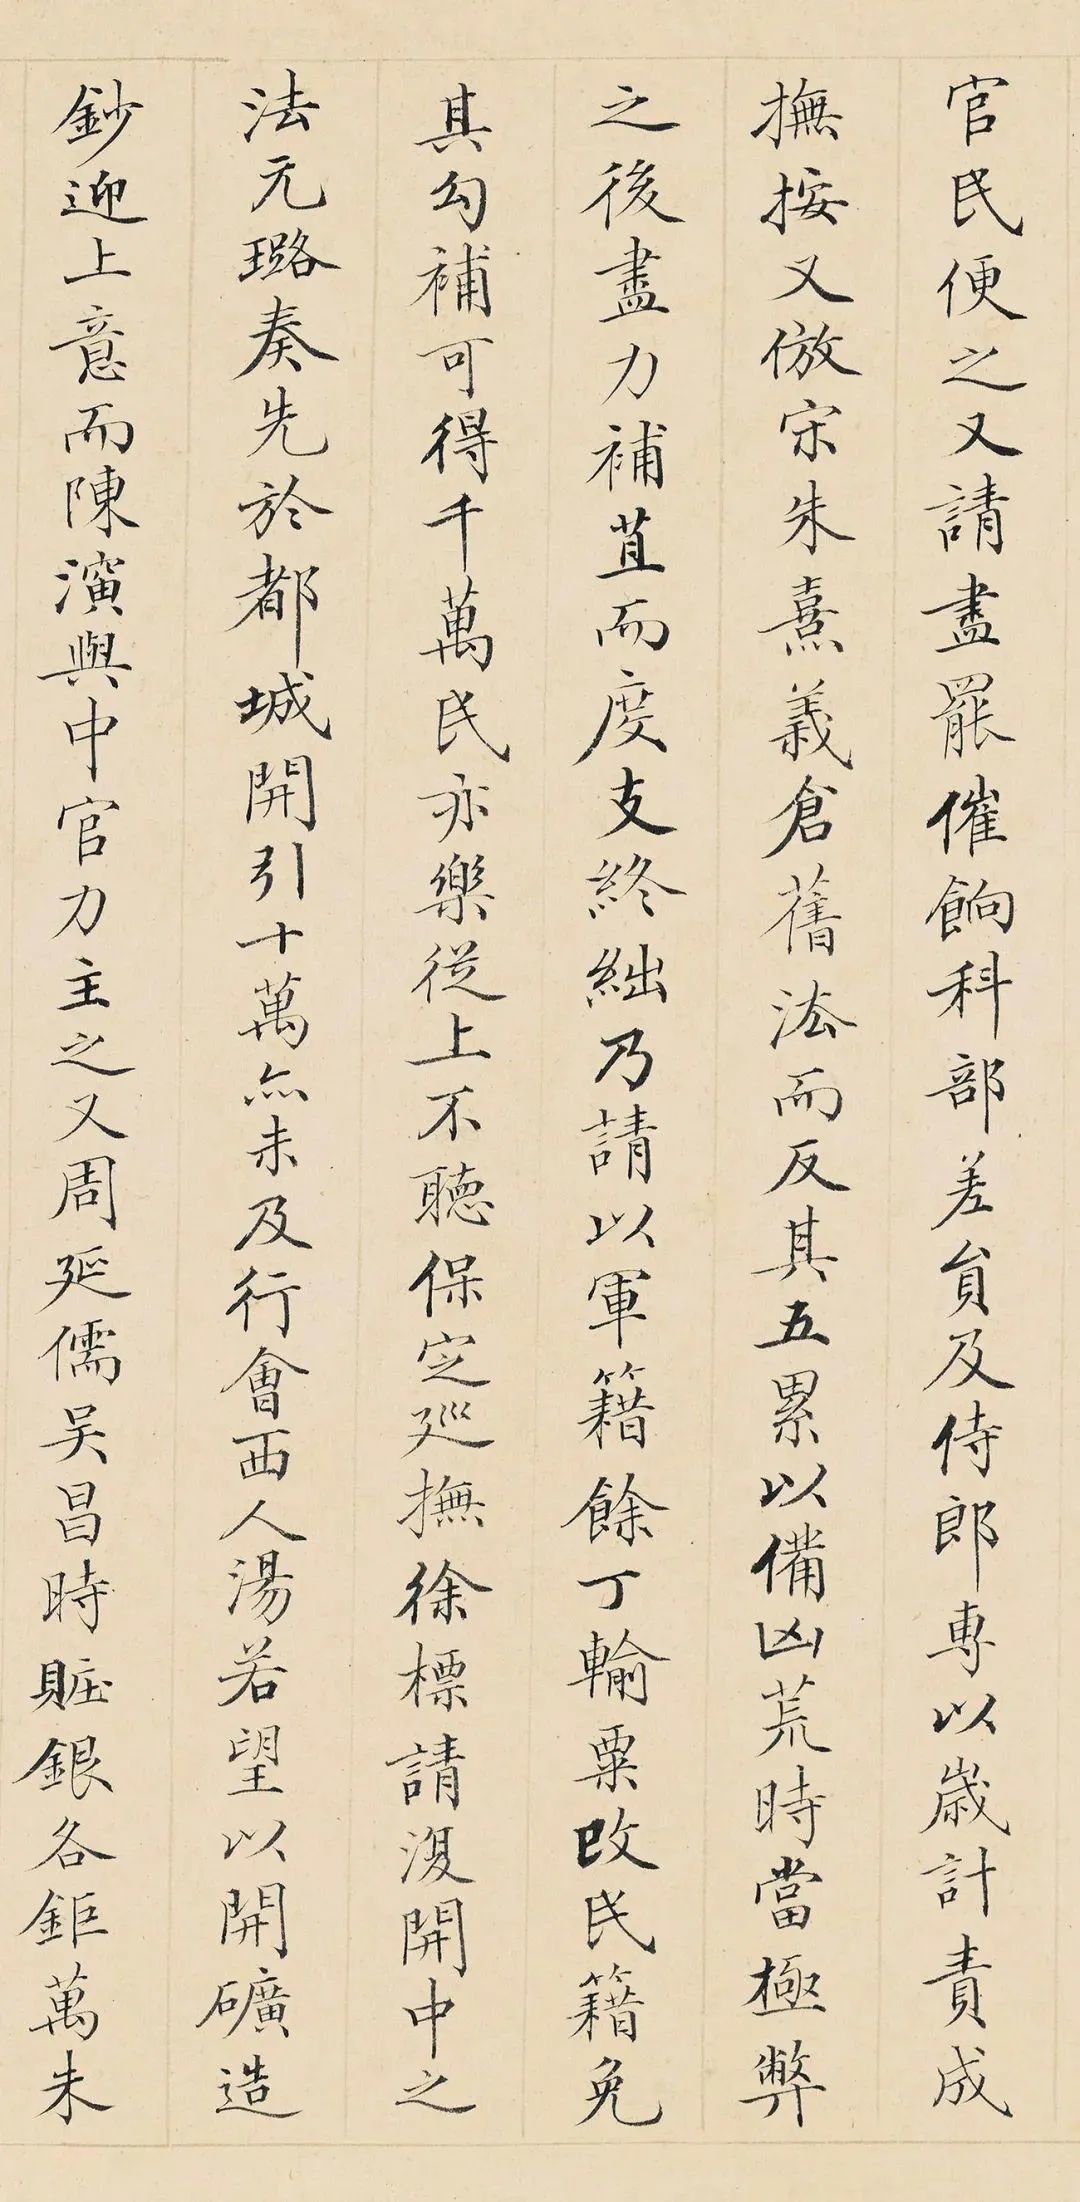 官民便之又請盡罷催餉科部差員及侍郎專以歲計責成
撫按又倣宋朱熹義倉舊法而反其五累以備凶荒時當極弊
之後盡力補苴而度支終絀乃請以軍籍餘丁輸粟改民籍免
其勾補可得千萬民亦樂從上不聽保定巡撫徐標請復開中之
法元璐奏先於都城開引十萬亦未及行會西人湯若望以開礦造
鈔迎上意而陳演與中官力主之又周延儒吴昌時賍銀各鉅萬未